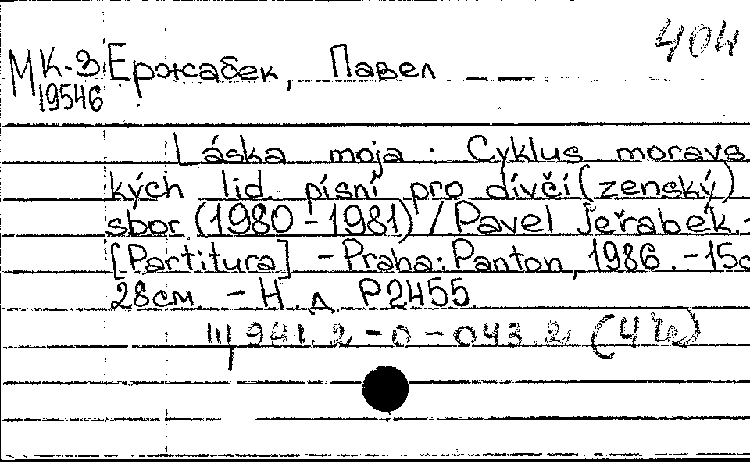 404
МК-3 Ержабек, Павел
19546
Láska moja : Cyklus moravs
kých lid písní pro dívčí (zenský)
sbor (1980-1981) / Pavel Jeřabek.-
[Partitura] - Praha: Panton, 1986. - 15c
28см. - Н. д. P2455
Щ941.2-0-043.2 (4Че)